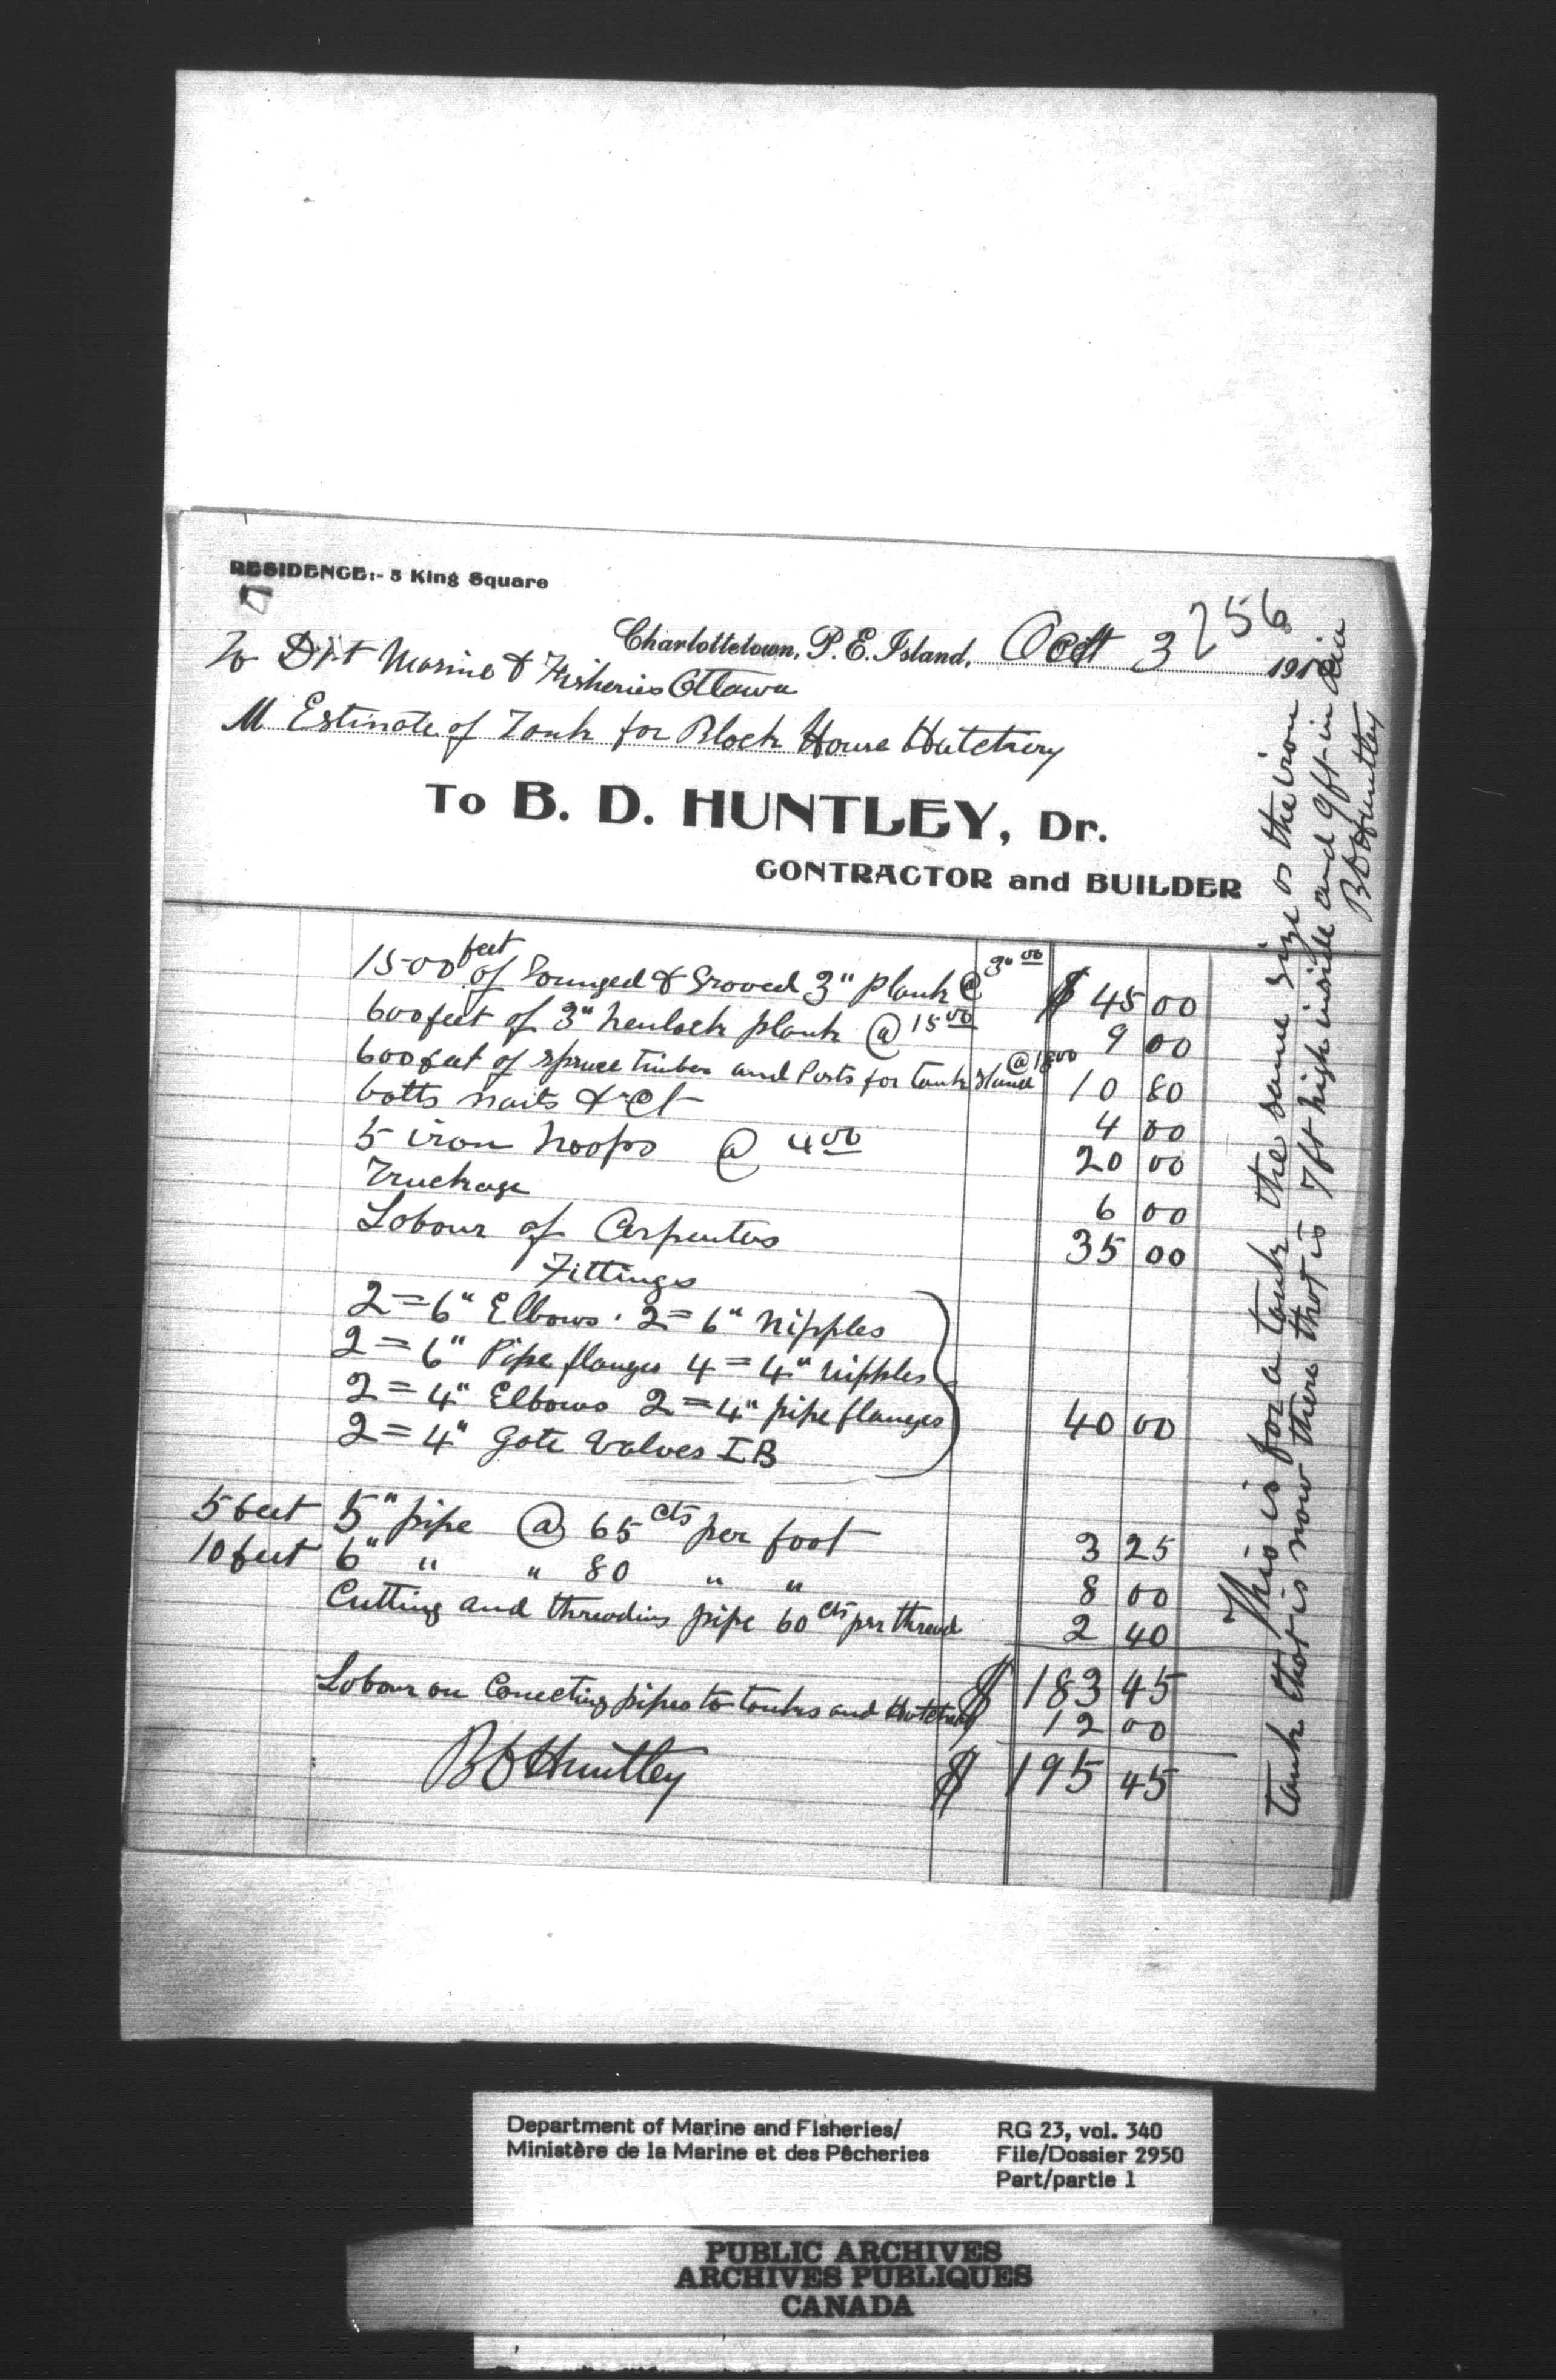 RESIDENCE:- 5 King Square
256
Charlottetown, P. E. Island, Oct 3 191
To Dpt Marine & Fisheries Ottawa
M Estimate of Tank for Block House Hatchery
To B. D. HUNTLEY, Dr.
CONTRACTOR and BUILDER
1500 feet of Tounged & Groved 3" plank @ 30 00 $ 45 00
600 feet of 3" hemlock plank @ 15 00 9 00
600 feet of spruce timber and Posts for tank stand @ 18 00 10 80
bolts nails & ct 4 00
5 iron hoops @ 4 00 20 00
Truckage 6 00
Labour of Carpenters 35 00
Fittings
2 = 6" Elbows. 2 = 6" nipples
2 = 6" Pipe flanges 4 = 4" nipples
2 = 4" Elbows 2 = 4" pipe flanges 40 00
2 = 4" Gate Valves I B
5 feet 5" pipe @ 65 cts per foot 3 25
10 feet 6" " " 80 " " 8 00
Cutting and threading pipe 60 cts per thread 2 40
$ 183 45
Labour on Conecting pipes to tanks and Hatchery 12 00
B D Huntley $ 195 45
This is for a tank the same size as the iron
tank that is now there that is 7 ft high inside and 9 ft in dia
B D Huntley
Department of Marine and Fisheries/
Ministère de la Marine et des Pêcheries
RG 23, vol. 340
File/Dossier 2950
Part/partie 1
PUBLIC ARCHIVES
ARCHIVES PUBLIQUES
CANADA